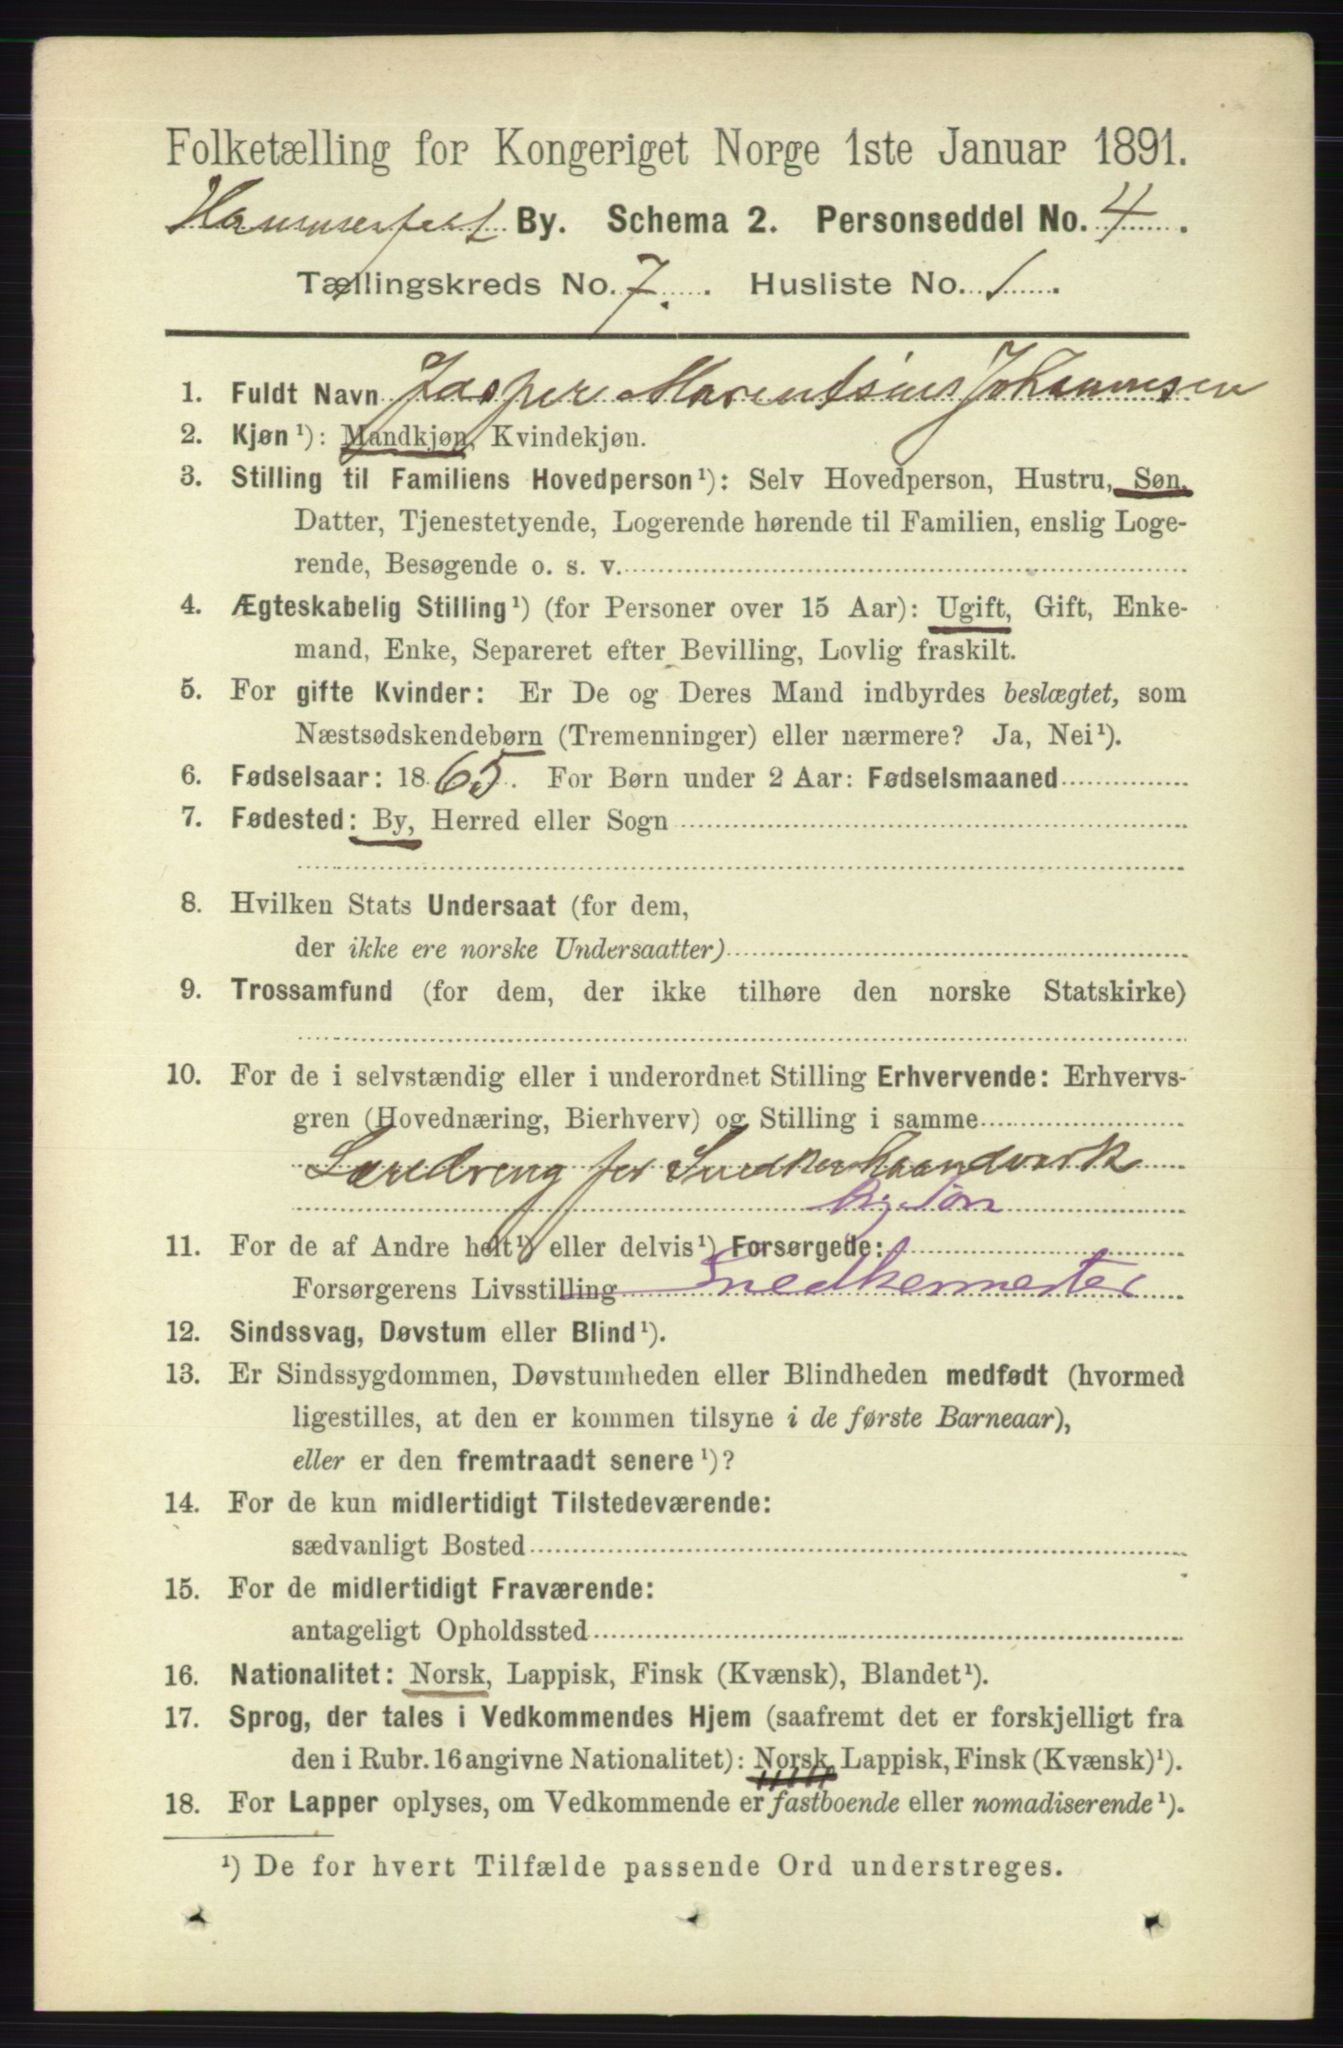 Folketælling for Kongeriget Norge 1ste Januar 1891.
Hammerfest By. Schema 2. Personseddel No. 4.
Tællingskreds No. 7. Husliste No. 1.
1. Fuldt Navn Jasper Marentsius Johannsen
2. Kjøn¹): Mandkjøn, Kvindekjøn.
3. Stilling til Familiens Hovedperson¹): Selv Hovedperson, Hustru, Søn,
Datter, Tjenestetyende, Logerende hørende til Familien, enslig Loge-
rende, Besøgende o. s. v.
4. Ægteskabelig Stilling¹) (for Personer over 15 Aar): Ugift, Gift, Enke-
mand, Enke, Separeret efter Bevilling, Lovlig fraskilt.
5. For gifte Kvinder: Er De og Deres Mand indbyrdes beslægtet, som
Næstsødskendebørn (Tremenninger) eller nærmere? Ja, Nei¹).
6. Fødselsaar: 1865. For Børn under 2 Aar: Fødselsmaaned
7. Fødested: By, Herred eller Sogn
8. Hvilken Stats Undersaat (for dem,
der ikke ere norske Undersaatter)
9. Trossamfund (for dem, der ikke tilhøre den norske Statskirke)
10. For de i selvstændig eller i underordnet Stilling Erhvervende: Erhvervs-
gren (Hovednæring, Bierhverv) og Stilling i samme
Læredreng for Snedkerhaandværk
Søn
11. For de af Andre helt¹) eller delvis¹) Forsørgede:
Forsørgerens Livsstilling Snedkermester
12. Sindssvag, Døvstum eller Blind¹).
13. Er Sindssygdommen, Døvstumheden eller Blindheden medfødt (hvormed
ligestilles, at den er kommen tilsyne i de første Barneaar),
eller er den fremtraadt senere¹)?
14. For de kun midlertidigt Tilstedeværende:
sædvanligt Bosted
15. For de midlertidigt Fraværende:
antageligt Opholdssted
16. Nationalitet: Norsk, Lappisk, Finsk (Kvænsk), Blandet¹).
17. Sprog, der tales i Vedkommendes Hjem (saafremt det er forskjelligt fra
den i Rubr. 16 angivne Nationalitet): Norsk, Lappisk, Finsk (Kvænsk)¹).
18. For Lapper oplyses, om Vedkommende er fastboende eller nomadiserende¹).
¹) De for hvert Tilfælde passende Ord understreges.